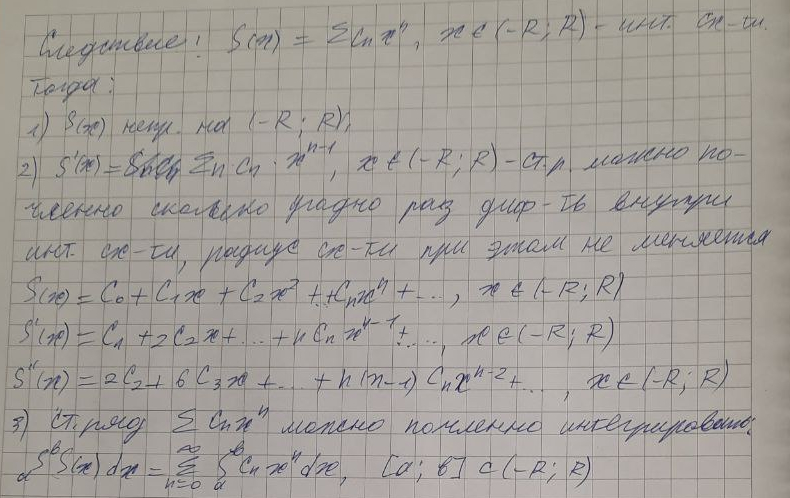 Следствие: S(x) = Σ Cₙ xⁿ, x ∈ (-R; R) - инт. сх-ти.
Тогда:
1) S(x) непр. на (-R; R);
2) S'(x) = Σ n Cₙ · xⁿ⁻¹, x ∈ (-R; R) - ст.р. можно по-
членно сколько угодно раз диф-ть внутри
инт. сх-ти, радиус сх-ти при этом не меняется
S(x) = C₀ + C₁x + C₂x² + ... + Cₙxⁿ + ..., x ∈ (-R; R)
S'(x) = C₁ + 2C₂x + ... + n Cₙ xⁿ⁻¹ + ..., x ∈ (-R; R)
S''(x) = 2C₂ + 6C₃x + ... + n(n-1) Cₙxⁿ⁻² + ..., x ∈ (-R; R)
3) ст. ряд Σ Cₙxⁿ можно почленно интегрировать:
∫ₐᵇ S(x) dx = Σₙ₌₀^∞ ∫ₐᵇ Cₙ xⁿ dx, [a; b] ⊂ (-R; R)